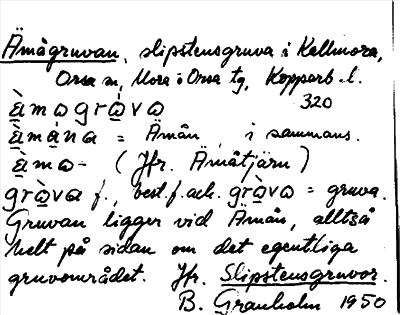 Ämågruvan, slipstensgruva i Kallmora,
Orsa sn, Mora o Orsa tg, Kopparb. l.
320
ä̀mogrà̠vo
ä̠̀mána = Ämån, i sammans.
ä̠̀mo- (Jfr. Ämåtjärn)
grà̠va f., best. f. ack. grà̠vo = gruva.
Gruvan ligger vid Ämån, alltså
helt på sidan om det egentliga
gruvområdet. Jfr. Slipstensgruvor.
B. Granholm 1950